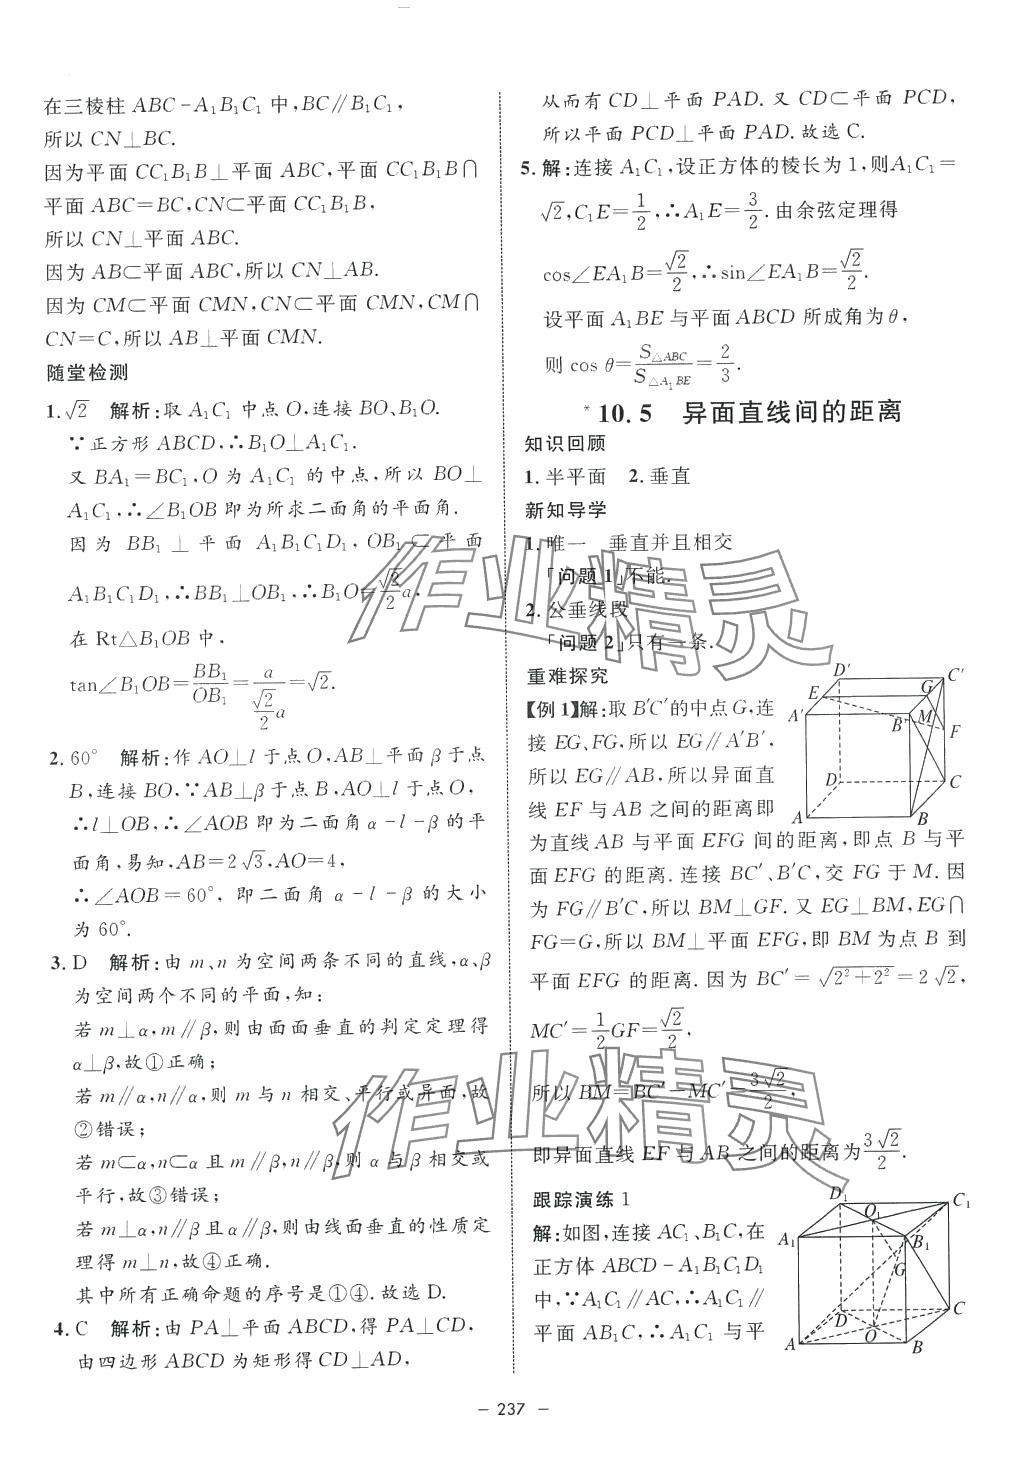 在三棱柱 ABC-A₁B₁C₁ 中,BC∥B₁C₁,
所以 CN⊥BC.
因为平面 CC₁B₁B⊥平面 ABC,平面 CC₁B₁B∩
平面 ABC=BC,CN⊂平面 CC₁B₁B,
所以 CN⊥平面 ABC.
因为 AB⊂平面 ABC,所以 CN⊥AB.
因为 CM⊂平面 CMN,CN⊂平面 CMN,CM∩
CN=C,所以 AB⊥平面 CMN.
随堂检测
1. √2 解析:取 A₁C₁ 中点 O,连接 BO、B₁O.
∵正方形 ABCD,∴B₁O⊥A₁C₁.
又 BA₁=BC₁,O 为 A₁C₁ 的中点,所以 BO⊥
A₁C₁,∴∠B₁OB 即为所求二面角的平面角.
因为 BB₁⊥平面 A₁B₁C₁D₁,OB₁⊂平面
A₁B₁C₁D₁,∴BB₁⊥OB₁,∴B₁O=√2/2 a.
在 Rt△B₁OB 中,
tan∠B₁OB=BB₁/OB₁=a/(√2/2 a)=√2.
2. 60° 解析:作 AO⊥l 于点 O,AB⊥平面 β 于点
B,连接 BO,∵AB⊥β 于点 B,AO⊥l 于点 O,
∴l⊥OB,∴∠AOB 即为二面角 α-l-β 的平
面角,易知,AB=2√3,AO=4,
∴∠AOB=60°,即二面角 α-l-β 的大小
为 60°.
3. D 解析:由 m、n 为空间两条不同的直线,α、β
为空间两个不同的平面,知:
若 m⊥α,m∥β,则由面面垂直的判定定理得
α⊥β,故①正确;
若 m∥α,n∥α,则 m 与 n 相交、平行或异面,故
②错误;
若 m⊂α,n⊂α 且 m∥β,n∥β,则 α 与 β 相交或
平行,故③错误;
若 m⊥α,n∥β 且 α∥β,则由线面垂直的性质定
理得 m⊥n,故④正确.
其中所有正确命题的序号是①④.故选 D.
4. C 解析:由 PA⊥平面 ABCD,得 PA⊥CD,
由四边形 ABCD 为矩形得 CD⊥AD,
从而有 CD⊥平面 PAD.又 CD⊂平面 PCD,
所以平面 PCD⊥平面 PAD.故选 C.
5. 解:连接 A₁C₁,设正方体的棱长为 1,则A₁C₁=
√2,C₁E=1/2,∴A₁E=3/2.由余弦定理得
cos∠EA₁B=√2/2,∴sin∠EA₁B=√2/2.
设平面 A₁BE 与平面 ABCD 所成角为 θ,
则 cos θ=S△ABC/S△A₁BE=2/3.
*10.5 异面直线间的距离
知识回顾
1. 半平面 2. 垂直
新知导学
1. 唯一 垂直并且相交
「问题 1」不能.
2. 公垂线段
「问题 2」只有一条.
重难探究
【例 1】解:取 B′C′的中点 G,连
接 EG、FG,所以 EG∥A′B′,
所以 EG∥AB,所以异面直
线 EF 与 AB 之间的距离即
为直线 AB 与平面 EFG 间的距离,即点 B 与平
面 EFG 的距离.连接 BC′、B′C,交 FG 于 M.因
为 FG∥B′C,所以 BM⊥GF.又 EG⊥BM,EG∩
FG=G,所以 BM⊥平面 EFG,即 BM 为点 B 到
平面 EFG 的距离.因为 BC′=√(2²+2²)=2√2,
MC′=1/2 GF=√2/2,
所以 BM=BC′-MC′=3√2/2,
即异面直线 EF 与 AB 之间的距离为 3√2/2.
D′
C′
E
G
A′
B′
M
F
D
C
A
B
跟踪演练 1
解:如图,连接 AC₁、B₁C,在
正方体 ABCD-A₁B₁C₁D₁
中,∵A₁C₁∥AC,∴A₁C₁∥
平面 AB₁C,∴A₁C₁ 与平
D₁
C₁
O₁
A₁
B₁
G
D
C
O
A
B
作业精灵
作业精灵
– 237 –